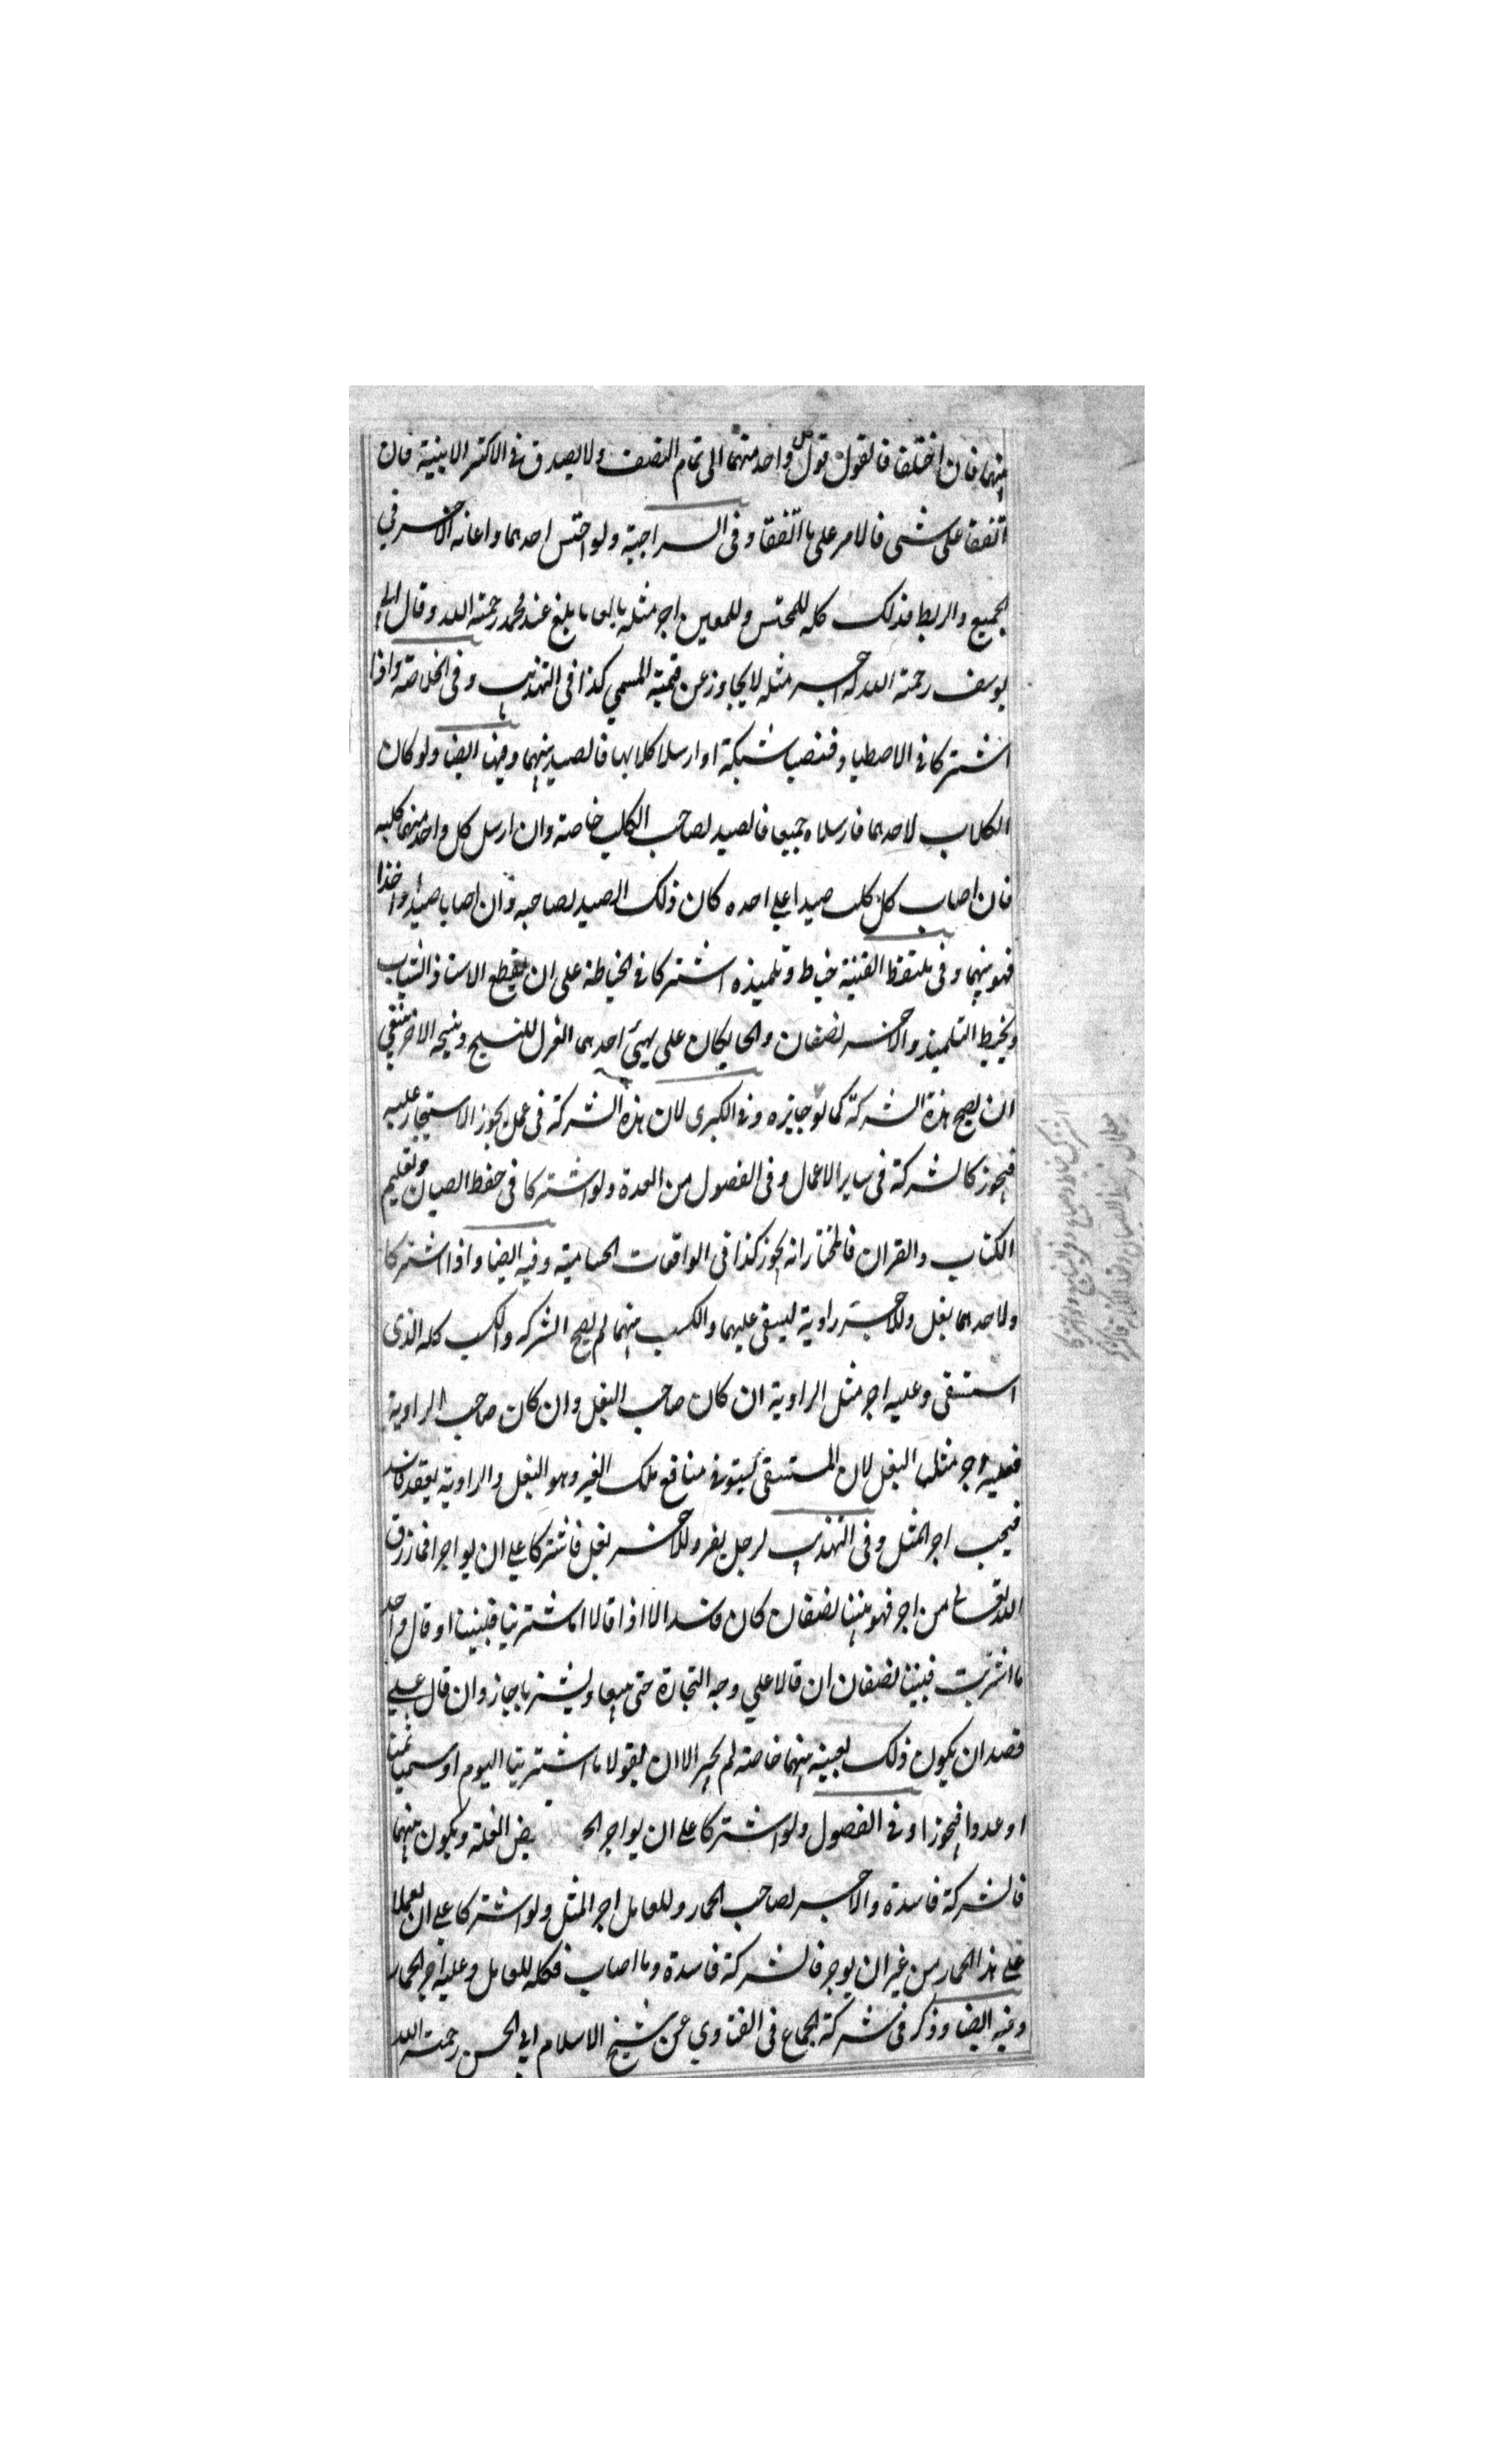 بينهما فان اختلفا فالقول قول كل واحد منهما الى تمام النصف ولا يصدق فى الاكثر الا ببينة فان
اتفقا على شئى فالامر على ما اتفقا وفى السراجية ولو احتش احدهما واعانه الآخر في
الجميع والربط فذلك كله للمحتش وللمعين اجر مثله بالغا ما بلغ عند محمد رحمته الله وقال ابى
يوسف رحمته الله له اجر مثله لا يجاوز عن قيمته المسمى كذا فى التهذيب وفى الخلاصة واذا
اشتركا فى الاصطياد فنصبا شبكة او ارسلا كلابهما فالصيد بينهما وفيها ايضا ولو كان
الكلاب لاحدهما فارسلاه جميعا فالصيد لصاحب الكلب خاصة وان ارسل كل واحد منهما كلبه
فان اصاب كل كلب صيدا على احده كان ذلك الصيد لصاحبه وان اصابا صيدا واخذا
فهو بينهما وفى ملتقط القنية خياط وتلميذه اشتركا فى الخياطة على ان يقطع الاستاذ الثياب
ويخيط التلميذ والاجر نصفان والحايكان على يهيئ احدهما الغزل للنسج وينسجه الاخر ينبغي
ان يصح هذه الشركة كما لو جايزه وفى الكبرى لان هذه الشركة فى عمل يجوز الاستيجار عليه
فيجوز كالشركة فى ساير الاعمال وفى الفصول من العدة ولو اشتركا فى حفظ الصبيان وتعليم
الكتاب والقران فالمختار انه يجوز كذا فى الواقعات الحسامية وفيه ايضا واذا اشتركا
ولاحدهما بغل وللآخر راوية ليسقى عليهما والكسب بينهما لم يصح الشركه والكسب كله الذى
استسقى وعليه اجر مثل الراوية ان كان صاحب البغل وان كان صاحب الراوية
فعليه اجر مثل البغل لان المستسقى يستوفى منافع ملك الغير وهو البغل والراوية بعقد فاسد
فيجب اجر المثل وفى التهذيب لرجل بقر وللآخر بغل فاشتركا على ان يواجرا فما رزق
الله تعالى من اجر فهو بيننا نصفان كان فاسدا الا اذا قالا ما اشترينا فبيننا او قال واحد
ما اشتريت فبيننا نصفان ان قالا على وجه التجارة حتى يبيعا ويشتريا جاز وان قال على
قصد ان يكون ذلك بعينه بينهما خاصة لم يجز الا ان يقولا ما اشترينا اليوم او سميا ثمنا
او عددا فيجوز وفى الفصول ولو اشتركا على ان يواجر الح بعض الغلة ويكون بينهما
فالشركة فاسدة والاجر لصاحب الحمار وللعامل اجر المثل ولو اشتركا على ان يعملا
على هذا الحمار من غير ان يوجر فالشركة فاسدة وما اصاب فكله للعامل وعليه اجر الحمار
وفيه ايضا وذكر فى شركة الجماع فى الفتاوي عن شيخ الاسلام ابي الحسن رحمته الله